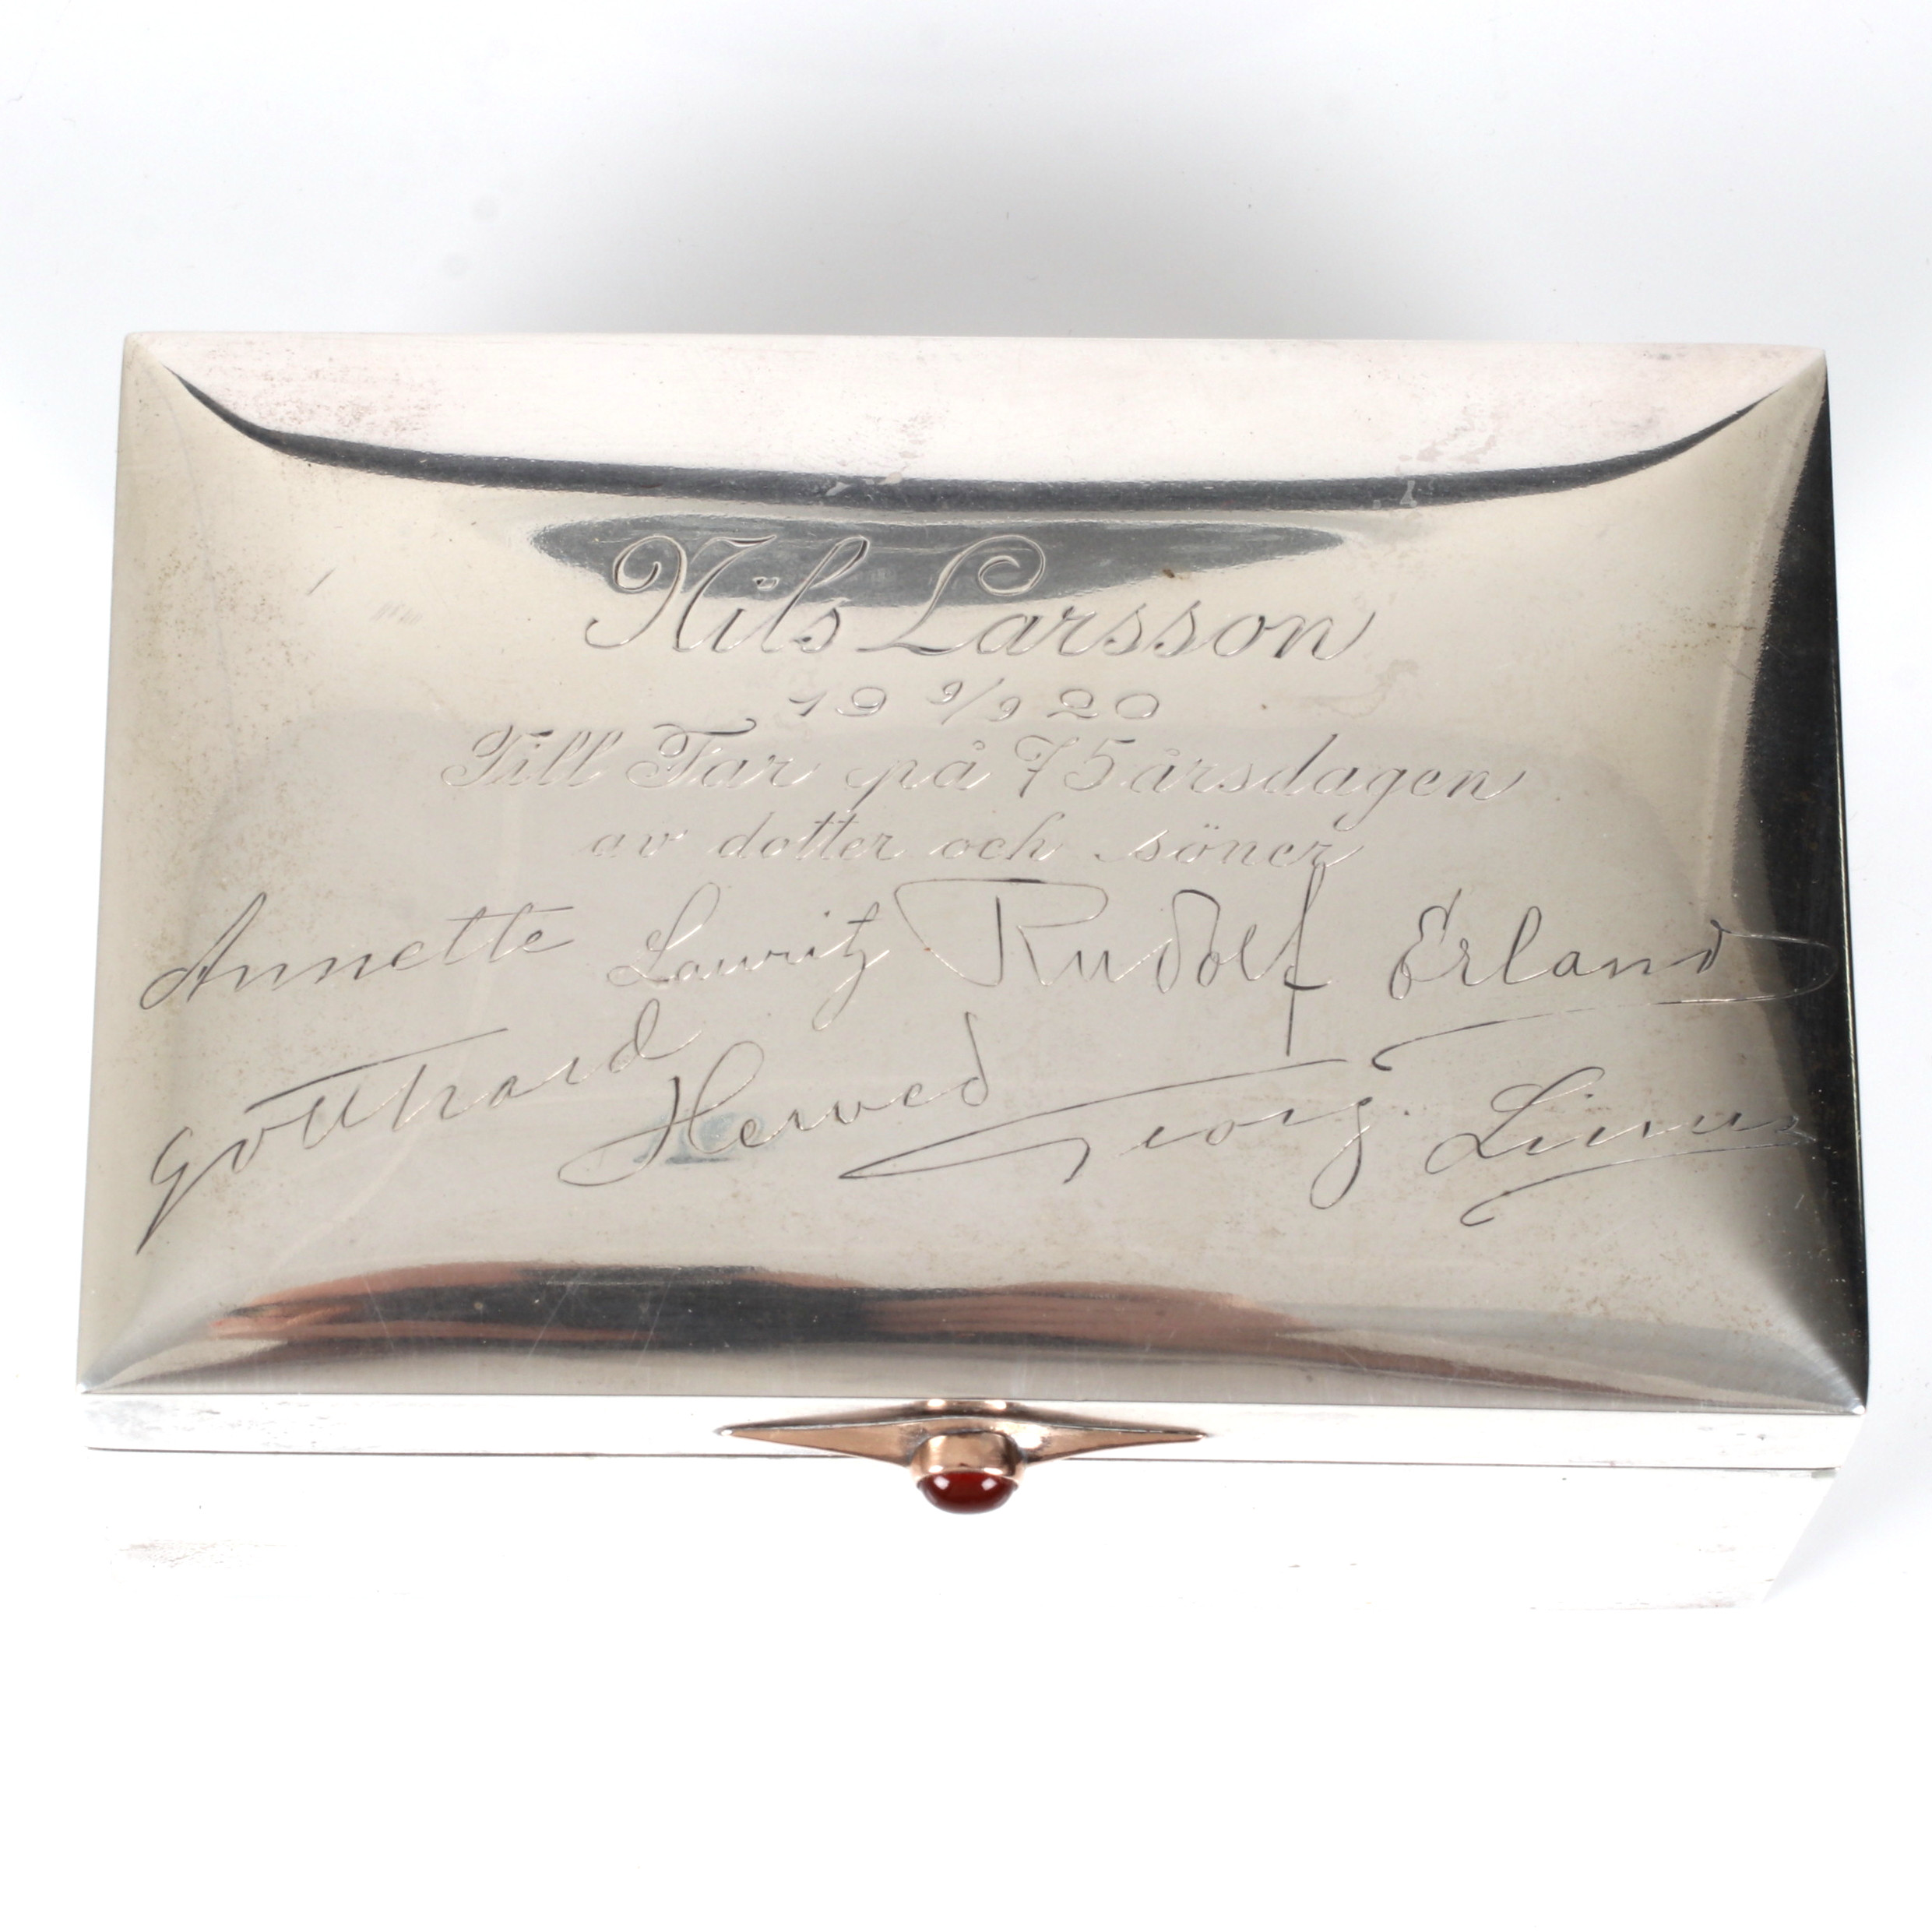 Nils Larsson
19 9/9 20
Till Far på 75 årsdagen
av dotter och söner
Annette Lauritz Rudolf Erland
Gotthard Herved Georg. Linus